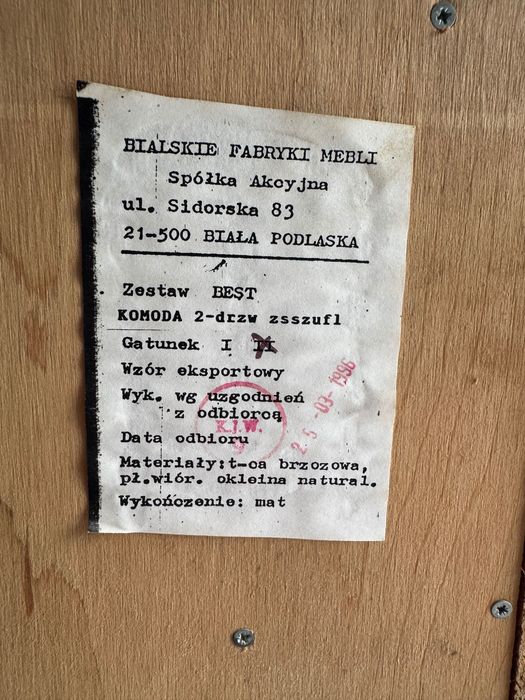 BIALSKIE FABRYKI MEBLI
Spółka Akcyjna
ul. Sidorska 83
21-500 BIAŁA PODLASKA
Zestaw BEST
KOMODA 2-drzw zsszufl
Gatunek I II
Wzór eksportowy
Wyk. wg uzgodnień
z odbiorcą
K.J.W.
Data odbioru
25 -03- 1996
Materiały:t-ca brzozowa,
pł.wiór. okleina natural.
Wykończenie: mat